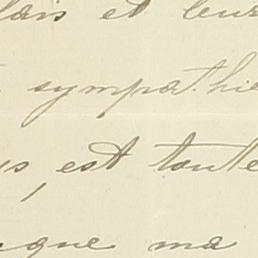 lais et leur
sympathie
s, est toute
que ma